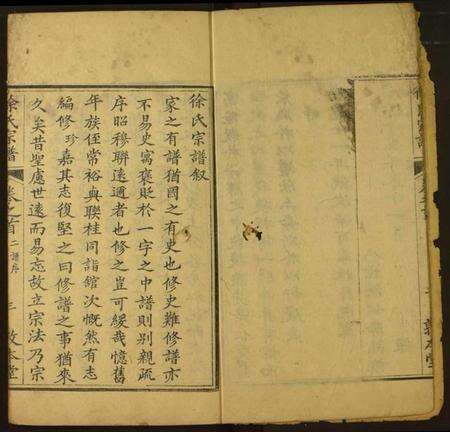 徐氏宗譜叙
家之有譜猶國之有史也修史難修譜亦
不易史寓褒貶於一字之中譜則别親疏
序昭穆聯遠邇者也修之豈可緩哉憶舊
年族侄常裕與聯桂同詣舘次慨然有志
編修珍嘉其志復堅之曰修譜之事猶來
久矣昔聖慮世遠而易忘故立宗法乃宗
徐氏宗譜
卷之首
二譜序
三
敦本堂